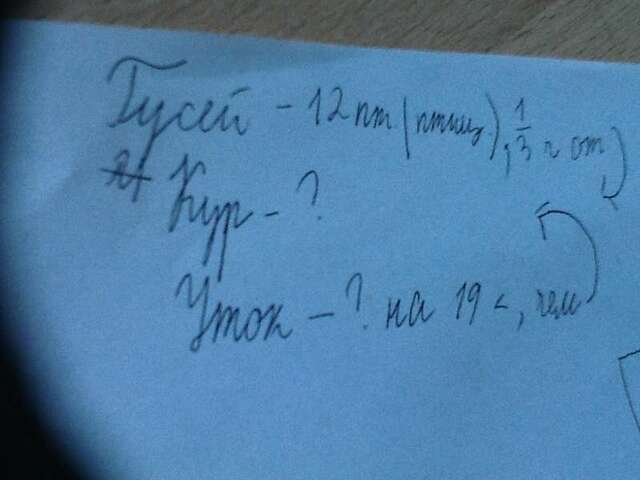 Гусей - 12 пт (птиц), 1/3 ч от
Кур - ?
Уток - ? на 19 <, чем